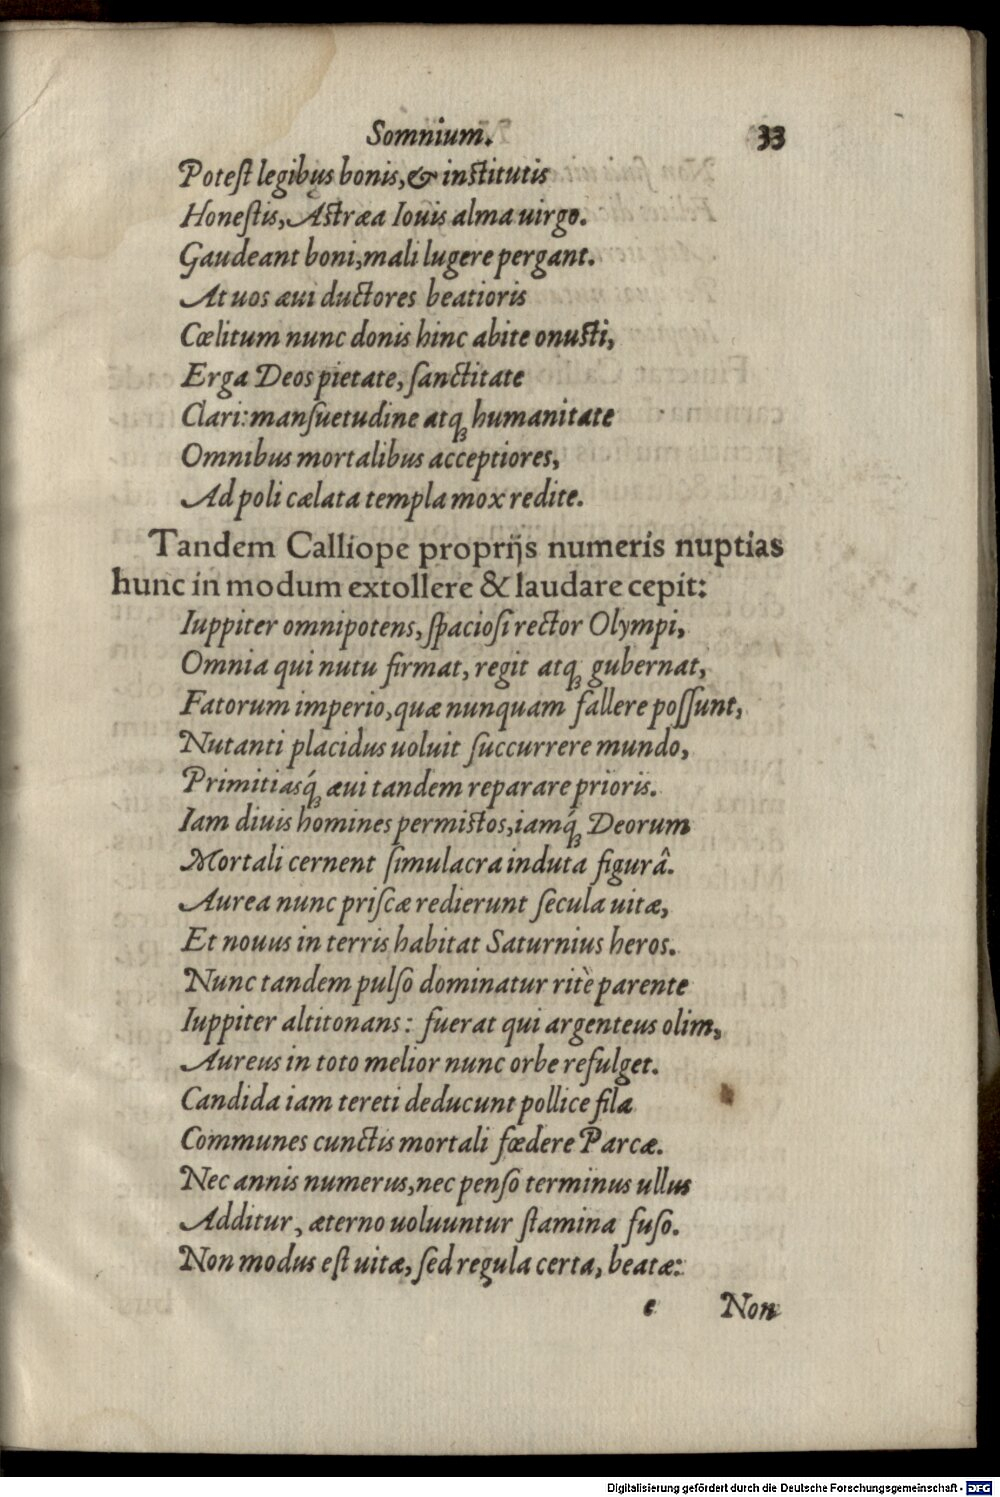 Somnium. 33
Potest legibus bonis, & institutis
Honestis, Astræa Iouis alma uirgo.
Gaudeant boni, mali lugere pergant.
At uos æui ductores beatioris
Cœlitum nunc donis hinc abite onusti,
Erga Deos pietate, sanctitate
Clari: mansuetudine atq; humanitate
Omnibus mortalibus acceptiores,
Ad poli cælata templa mox redite.
Tandem Calliope proprijs numeris nuptias
hunc in modum extollere & laudare cepit:
Iuppiter omnipotens, spaciosi rector Olympi,
Omnia qui nutu firmat, regit atq; gubernat,
Fatorum imperio, quæ nunquam fallere possunt,
Nutanti placidus uoluit succurrere mundo,
Primitiasq́; æui tandem reparare prioris.
Iam diuis homines permistos, iamq́; Deorum
Mortali cernent simulacra induta figurâ.
Aurea nunc priscæ redierunt secula uitæ,
Et nouus in terris habitat Saturnius heros.
Nunc tandem pulso dominatur ritè parente
Iuppiter altitonans: fuerat qui argenteus olim,
Aureus in toto melior nunc orbe refulget.
Candida iam tereti deducunt pollice fila
Communes cunctis mortali fœdere Parcæ.
Nec annis numerus, nec penso terminus ullus
Additur, æterno uoluuntur stamina fuso.
Non modus est uitæ, sed regula certa, beatæ:
e Non
Digitalisierung gefördert durch die Deutsche Forschungsgemeinschaft - DFG